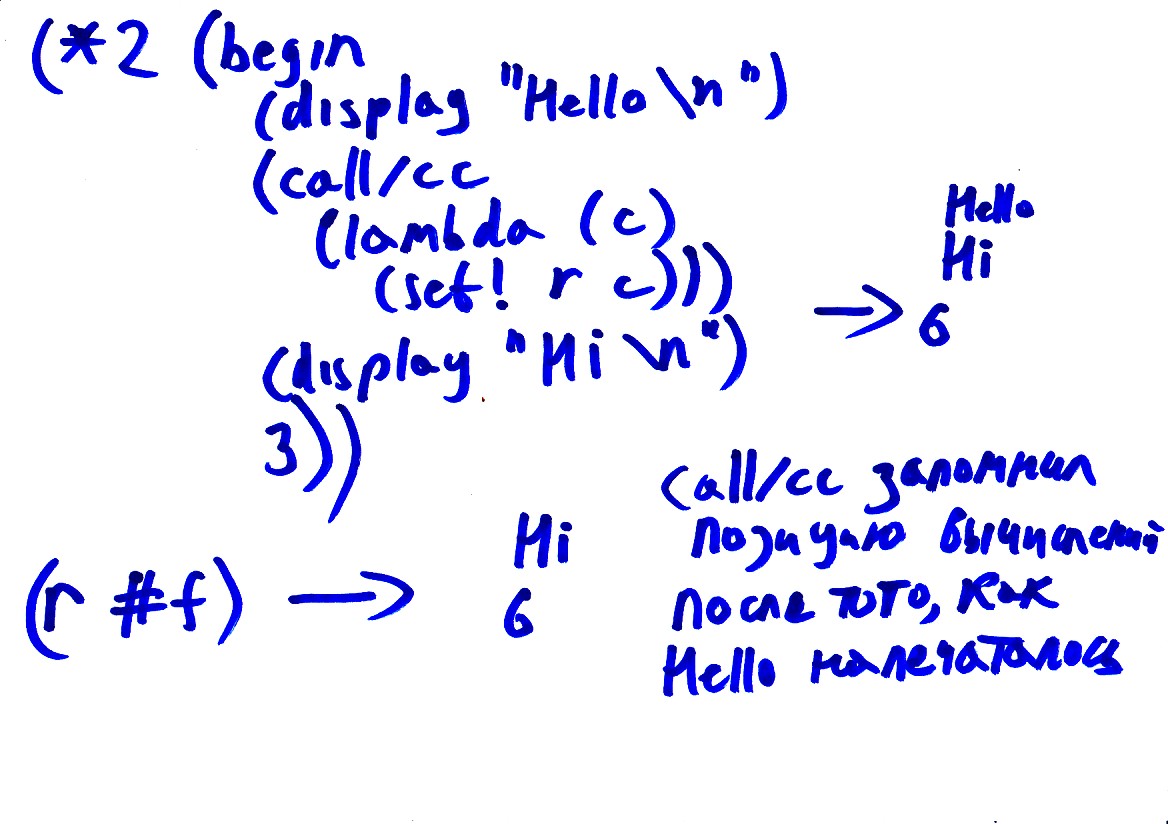 (*2 (begin
(display "Hello\n")
(call/cc
(lambda (c)
(set! r c)))
(display "Hi\n")
3))
→
Hello
Hi
6
(r #f) →
Hi
6
call/cc запомнил
позицию вычислений
после того, как
Hello напечаталось